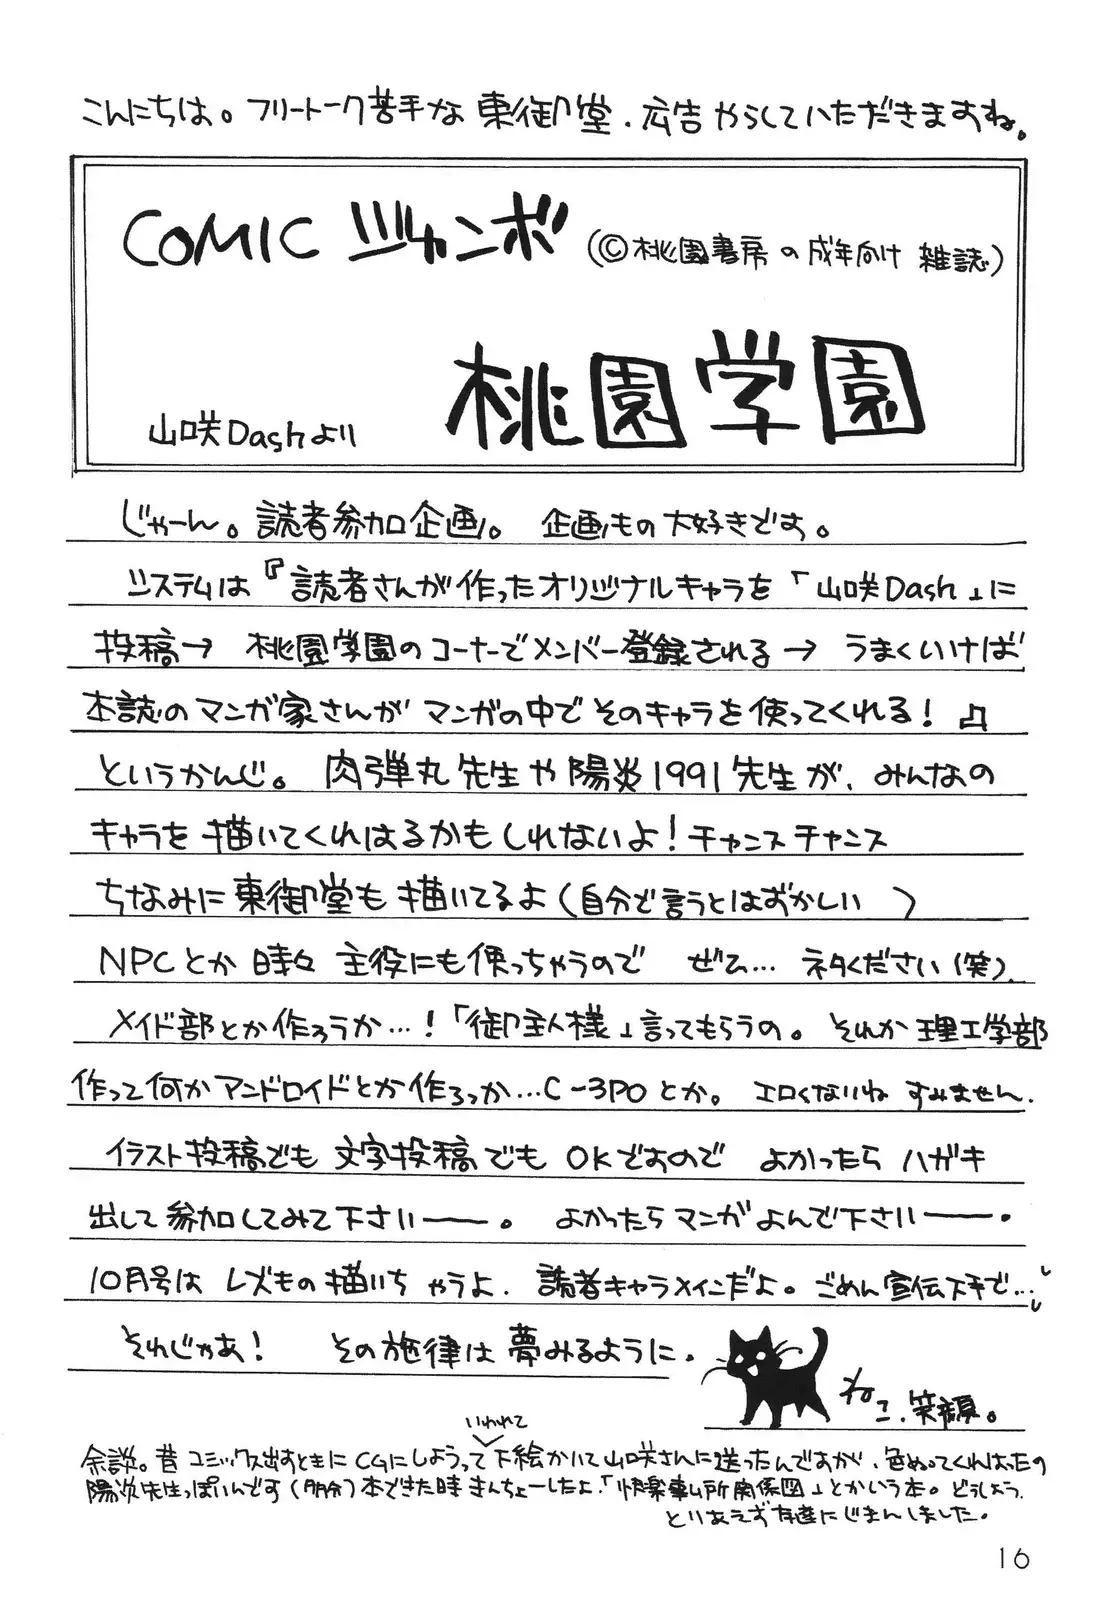 こんにちは。フリートーク苦手な東御堂、広告やらしていただきますね。
COMIC ジャンボ(©桃園書房の成年向け雑誌)
桃園学園
山咲Dashより
じゃーん。読者参加企画。企画もの大好きです。
システムは『読者さんが作ったオリジナルキャラを「山咲Dash」に
投稿→桃園学園のコーナーでメンバー登録される→うまくいけば
本誌のマンガ家さんがマンガの中でそのキャラを使ってくれる!』
というかんじ。肉弾丸先生や陽炎1991先生が、みんなの
キャラを描いてくれはるかもしれないよ!チャンスチャンス
ちなみに東御堂も描いてるよ(自分で言うとはずかしい )
NPCとか時々主役にも使っちゃうので ぜひ…ネタください(笑)。
メイド部とか作ろうか…!「御主人様」言ってもらうの。それか理工学部
作って何かアンドロイドとか作ろっか…C-3POとか。エロくないね すみません。
イラスト投稿でも文字投稿でもOKですので よかったらハガキ
出して参加してみて下さいーー。よかったらマンガよんで下さいーー。
10月号はレズもの描いちゃうよ。読者キャラメインだよ。ごめん宣伝下手で…
それじゃあ! その旋律は夢みるように。
ねこ、笑顔。
いわれて
余談。昔コミックス出すときにCGにしようって下絵かいて山咲さんに送ったんですが、色ぬってくれはったの
陽炎先生っぽいんです(多分)本できた時きんちょーしたよ。「快楽事務所関係図」とかいう本。どうしよう。
とりあえず友達にじまんしました。
16